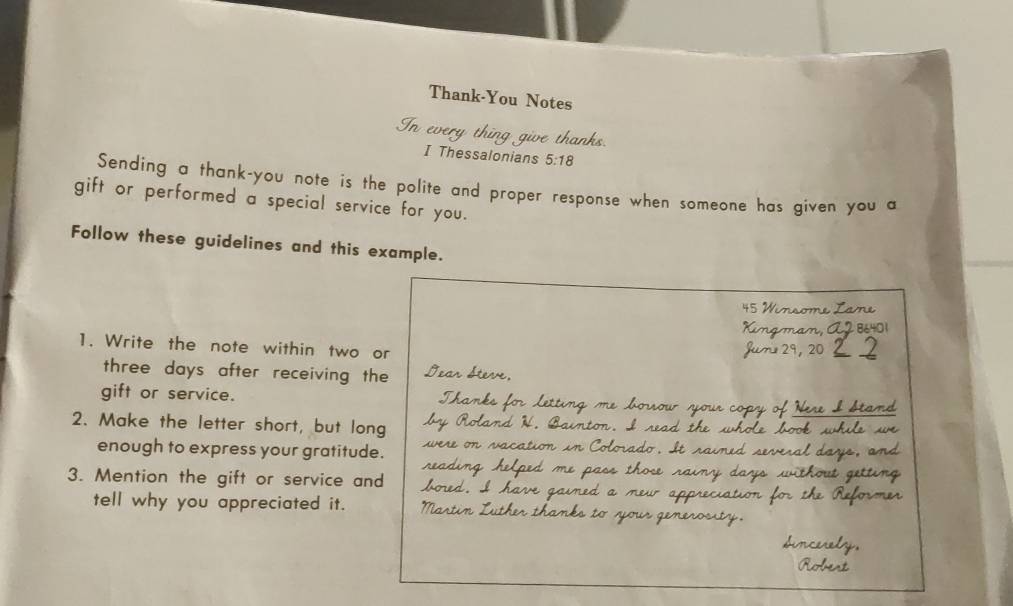 Thank-You Notes
In every thing give thanks.
I Thessalonians 5:18
Sending a thank-you note is the polite and proper response when someone has given you a
gift or performed a special service for you.
Follow these guidelines and this example.
1. Write the note within two or
three days after receiving the
gift or service.
2. Make the letter short, but long
enough to express your gratitude.
3. Mention the gift or service and
tell why you appreciated it.
45 Winsome Lane
Kingman, AZ 86401
June 29, 20 2 2
Dear Steve,
Thanks for letting me borrow your copy of Here I Stand
by Roland H. Bainton. I read the whole book while we
were on vacation in Colorado. It rained several days, and
reading helped me pass those rainy days without getting
bored. I have gained a new appreciation for the Reformer
Martin Luther thanks to your generosity.
Sincerely,
Robert